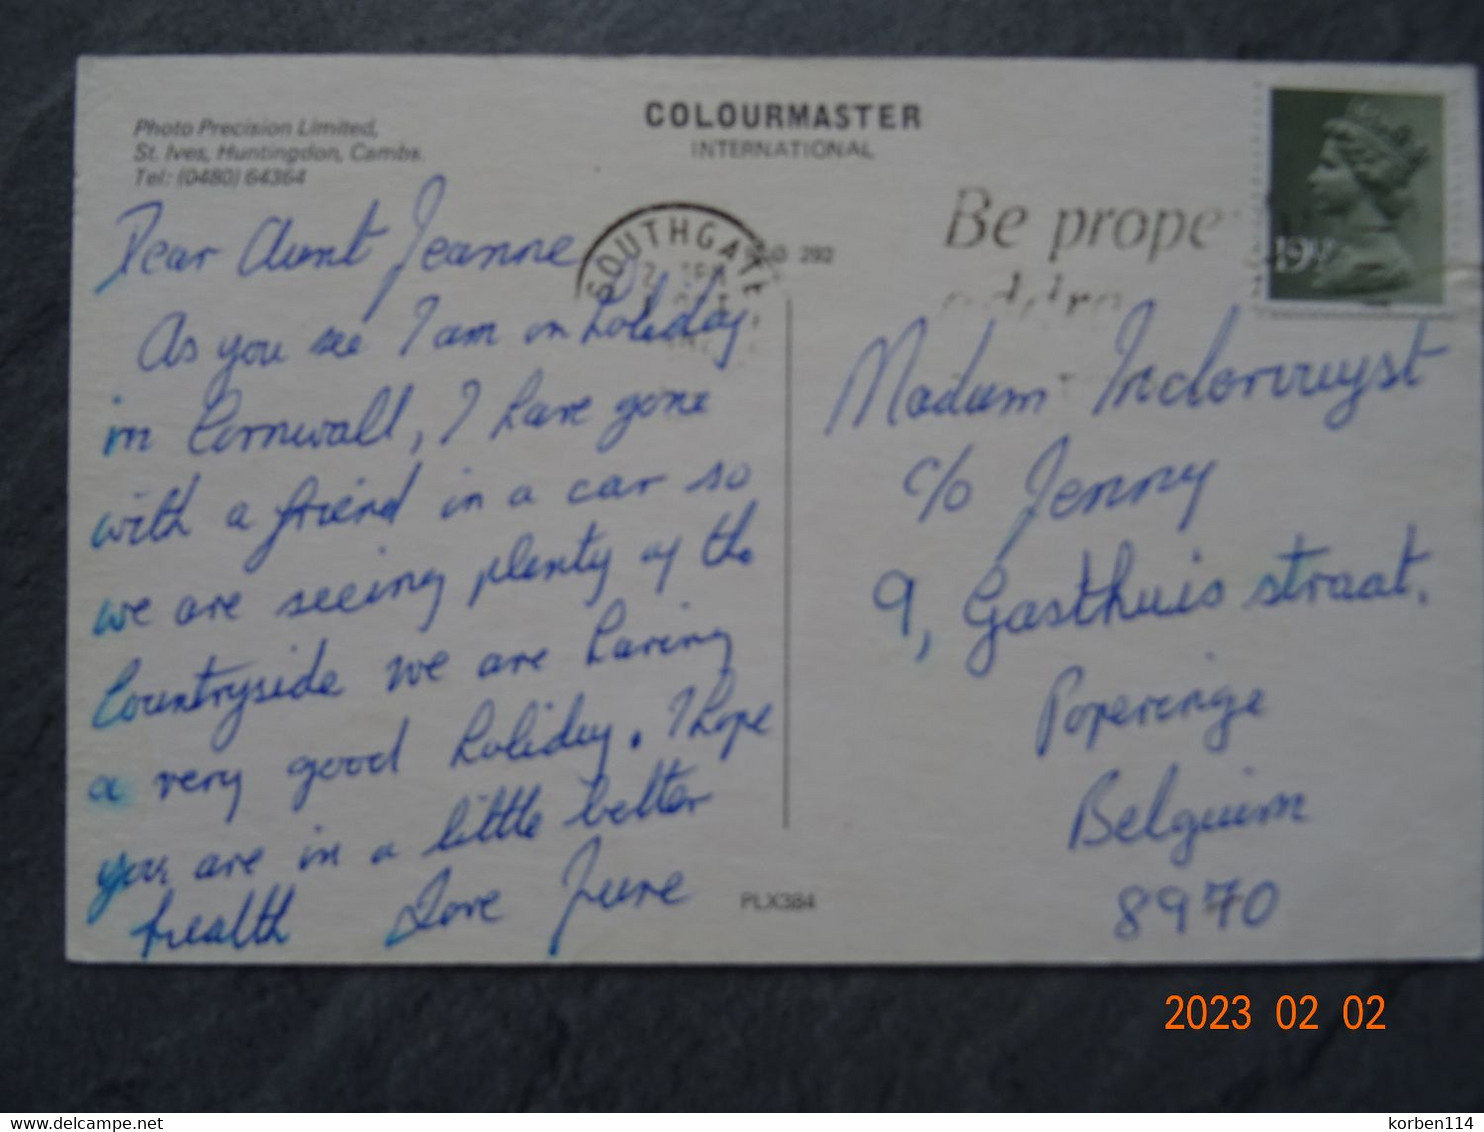 Photo Precision Limited,
St. Ives, Huntingdon, Cambs.
Tel: (0480) 64364
COLOURMASTER
INTERNATIONAL
SOUTHGATE
292
Be prope
Dear Aunt Jeanne
As you see I am on holiday
in Cornwall, I have gone
with a friend in a car so
we are seeing plenty of the
Countryside we are having
a very good holiday. I hope
you are in a little better
health Love June
PLX384
Madam Indervuyst
c/o Jenny
9, Gasthuis straat.
Poperinge
Belguim
8970
2023 02 02
delcampe.net
korben114